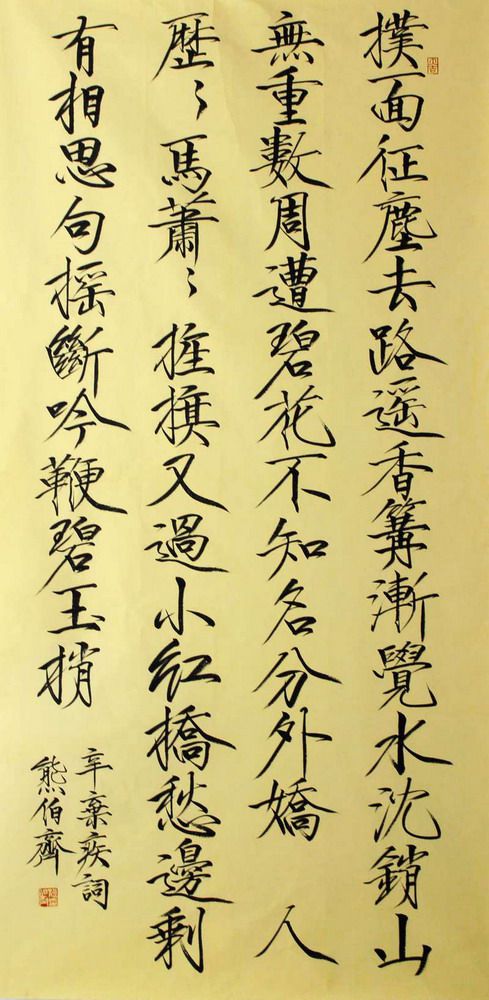 撲面征塵去路遥香篝漸覺水沈銷山
無重數周遭碧花不知名分外嬌 人
歷〻馬蕭〻旌旗又過小紅橋愁邊剩
有相思句摇斷吟鞭碧玉梢
辛棄疾詞
熊伯齊